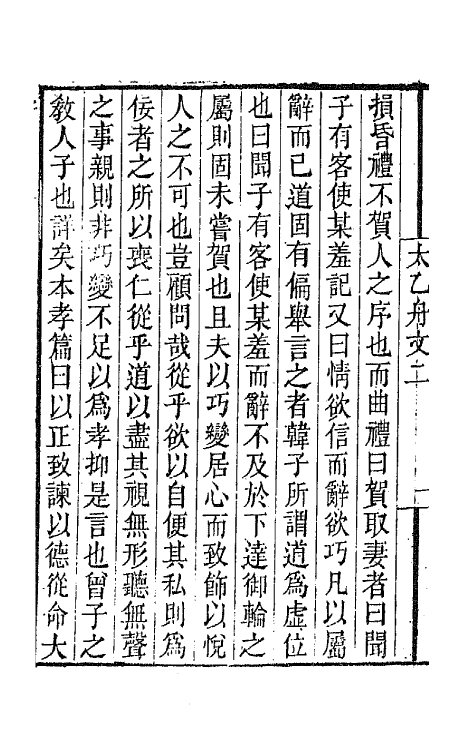 太乙舟文二
損昏禮不賀人之序也而曲禮曰賀取妻者曰聞
子有客使某羞記又曰情欲信而辭欲巧凡以屬
辭而已道固有偏舉言之者韓子所謂道爲虛位
也曰聞子有客使某羞而辭不及於下達御輪之
屬則固未嘗賀也且夫以巧變居心而致飾以悅
人之不可也豈顧問哉從乎欲以自便其私則爲
佞者之所以喪仁從乎道以盡其視無形聽無聲
之事親則非巧變不足以爲孝抑是言也曾子之
敎人子也詳矣本孝篇曰以正致諫以德從命大